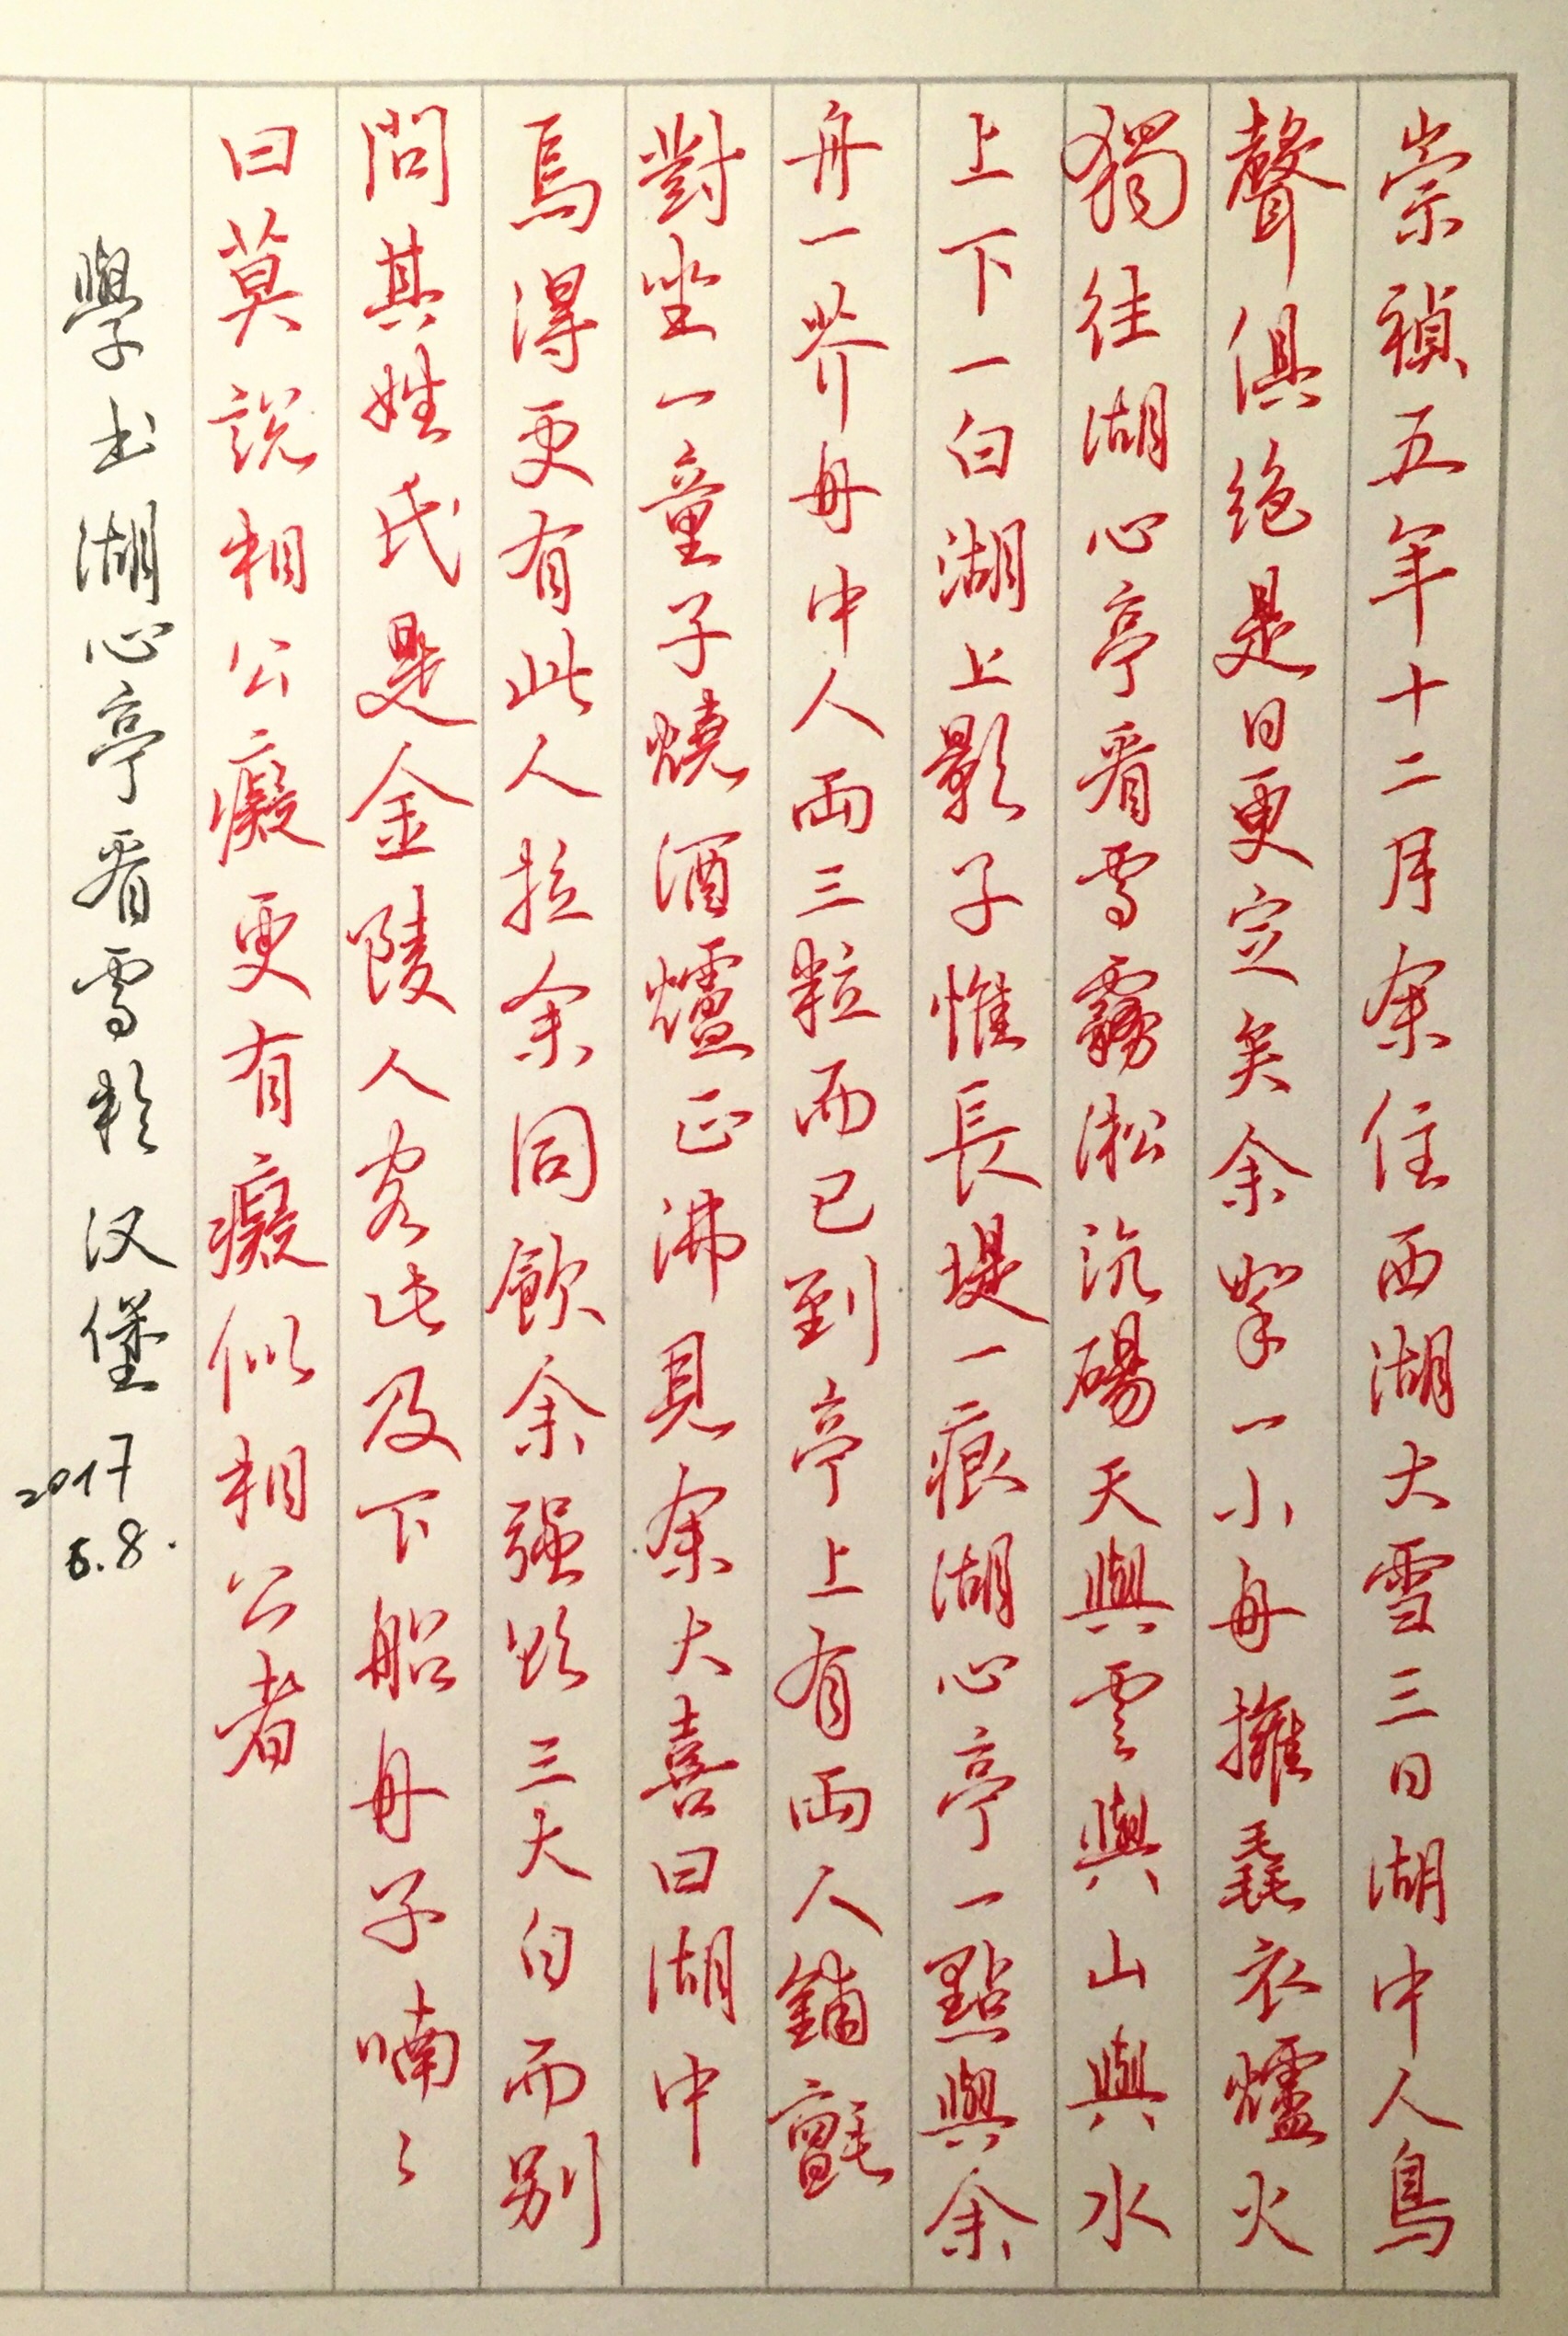 崇禎五年十二月余住西湖大雪三日湖中人鳥
聲俱絕是日更定矣余拏一小舟擁毳衣爐火
獨往湖心亭看雪霧淞沆碭天與雲與山與水
上下一白湖上影子惟長堤一痕湖心亭一點與余
舟一芥舟中人兩三粒而已到亭上有兩人鋪氈
對坐一童子燒酒爐正沸見余大喜曰湖中
焉得更有此人拉余同飲余强飲三大白而別
問其姓氏是金陵人客此及下船舟子喃〻
曰莫說相公癡更有癡似相公者
學书湖心亭看雪於汉堡2017
6.8.